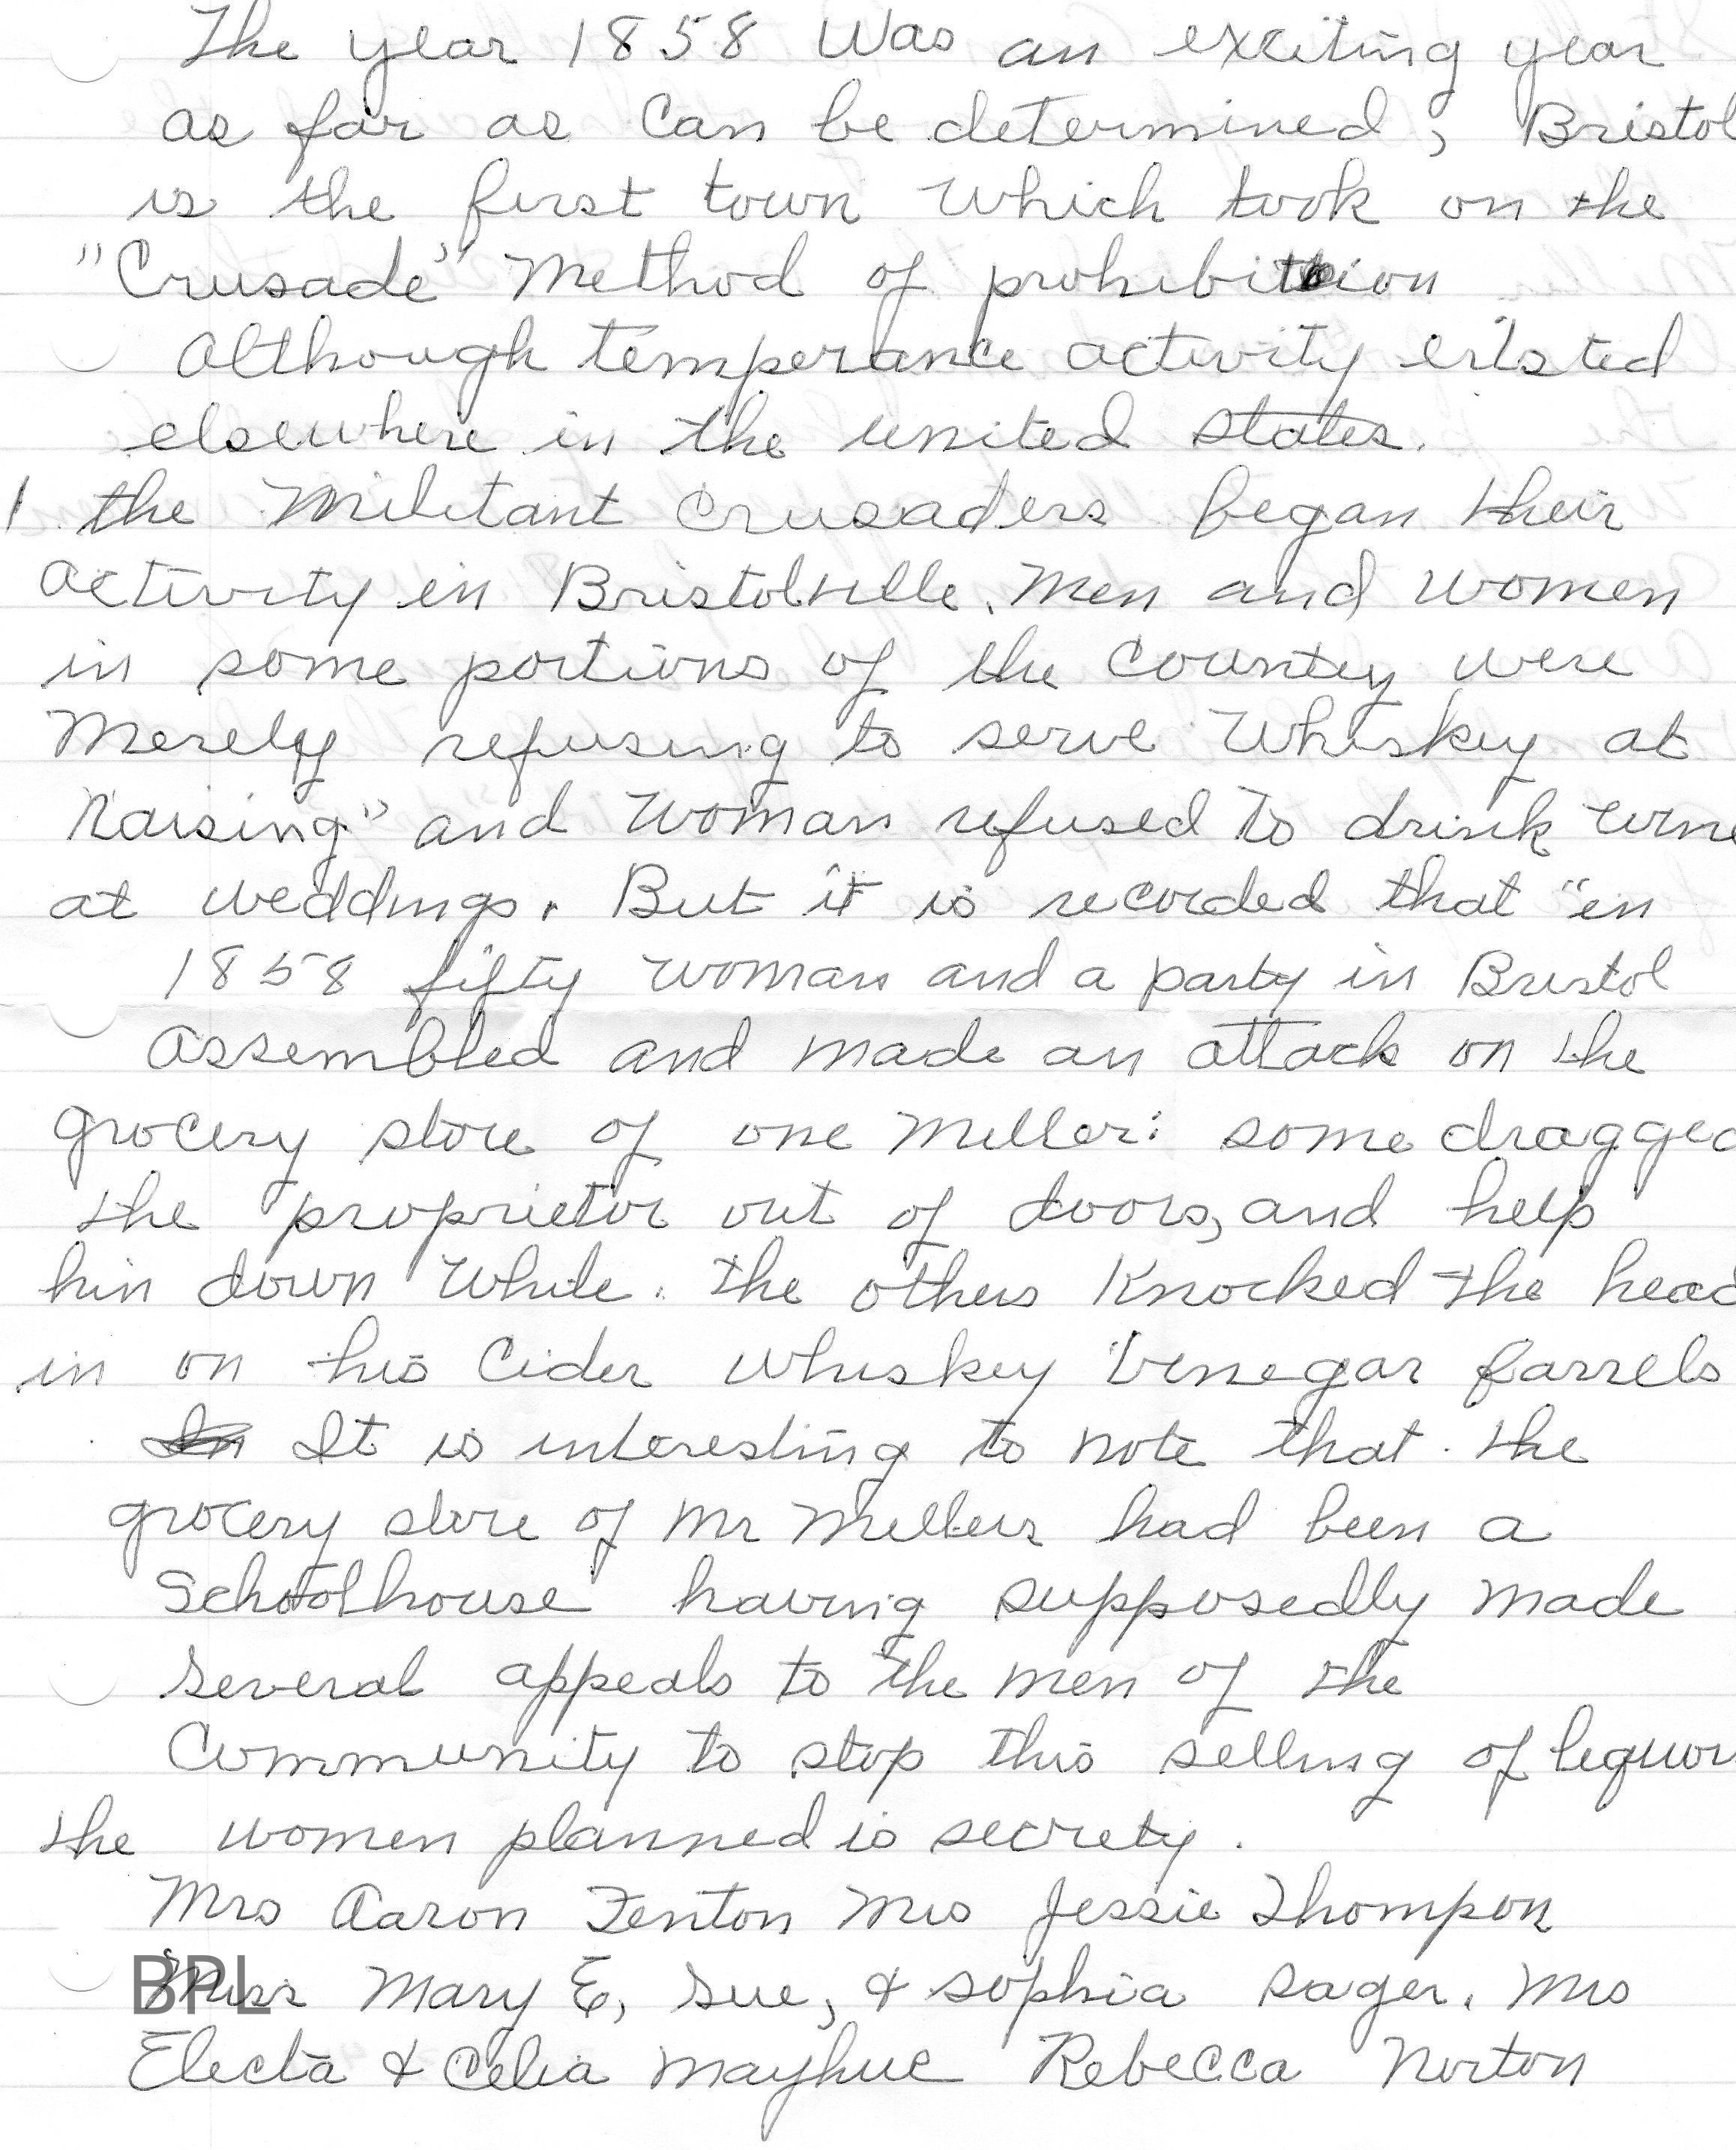 The year 1858 Was an exciting year
as far as Can be determined, Bristol
is the first town Which took on the
"Crusade" Method of prohibition
Although temperance activity exsted
elsewhere in the united states.
1 the Militant Crusaders began their
activity in Bristolville. Men and women
in some portions of the Country were
Merely refusing to serve Whiskey at
Raising" and Woman refused to drink wine
at weddings. But it is recorded that "in
1858 fifty woman and a party in Bristol
Assembled and made an attack on the
grocery store of one Miller: some dragged
the proprietor out of doors, and help
hin down While. the others Knocked the head
in on his Cider whiskey Vinegar farrels
It is interesting to note that. the
grocery store of Mr Millers had been a
Schoolhouse having supposedly made
several appeals to the men of the
Community to stop this selling of liquor
the women planned is secrety.
Mrs Aaron Fenton Mrs Jessie Thompson
BPL
Miss Mary E, Sue, & Sophia Sager. Mrs
Electa & Celia Mayhue Rebecca Norton